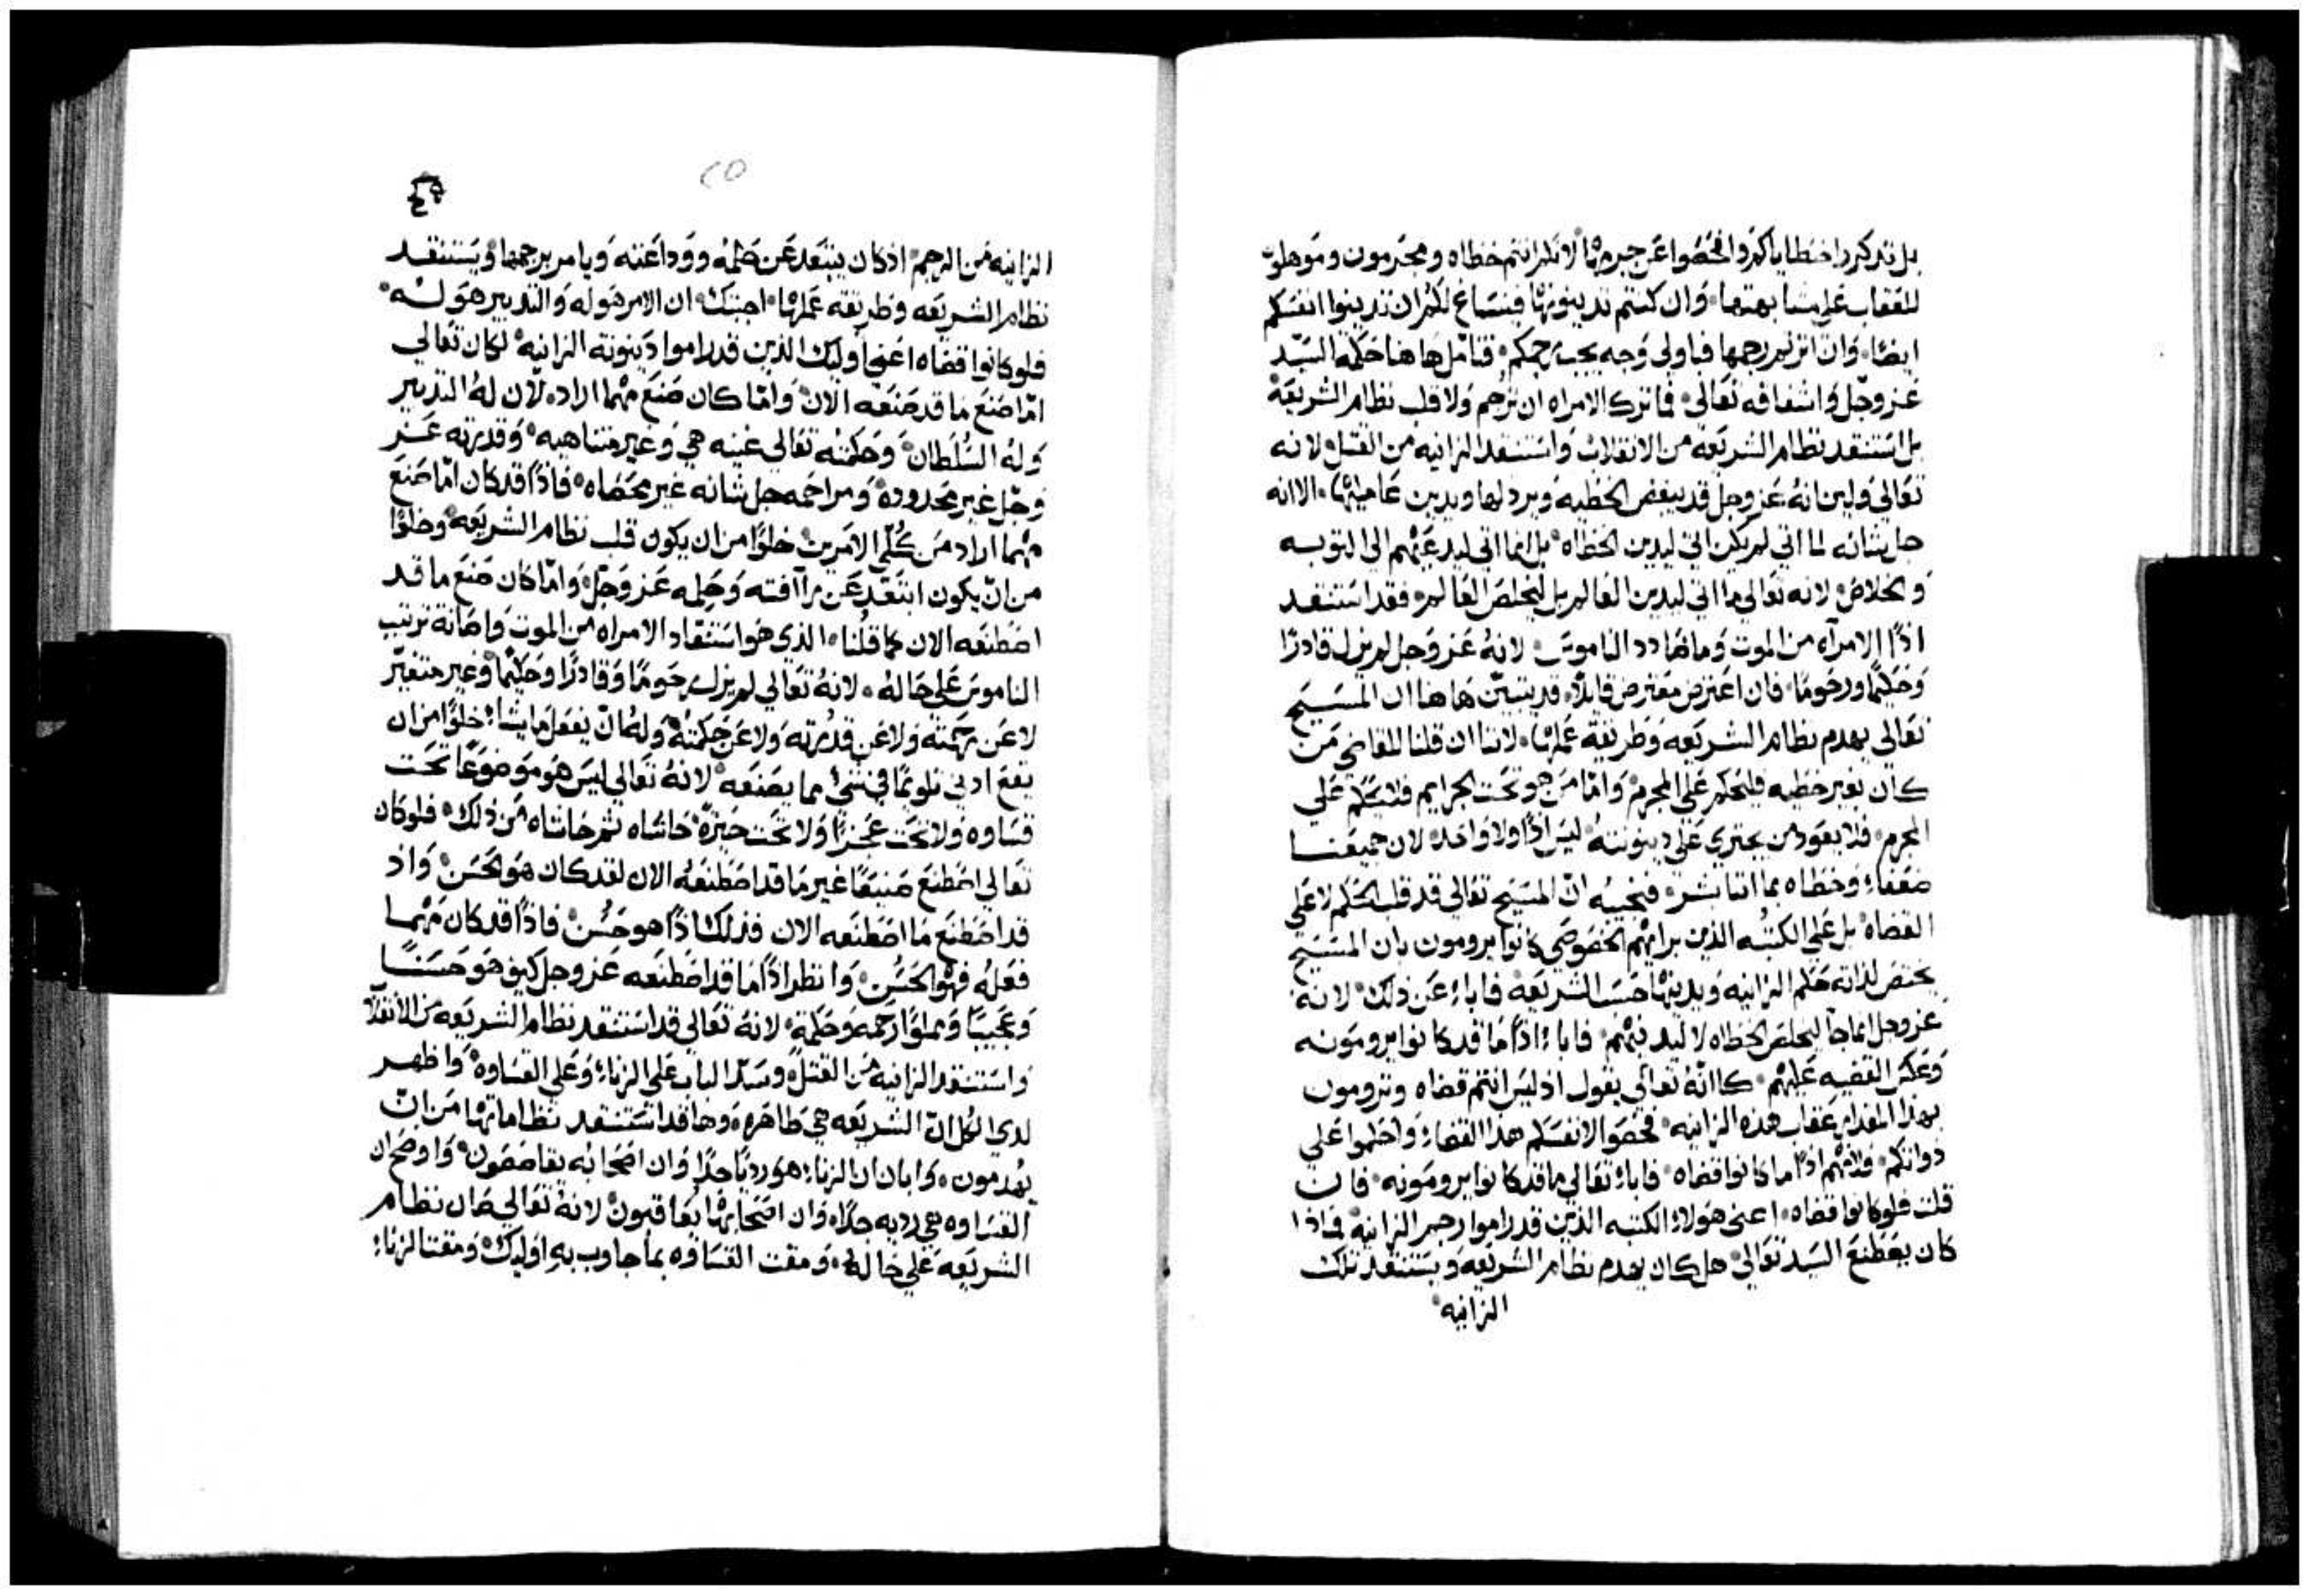 بل تدكروا خطاياكم وافحصوا عن جرمها لانكم انتم خطاه ومجرمون وموهلون
للعقاب علي مشابهتها وان كنتم تدينونها فينساغ لكم ان تدينوا انفسكم
ايضا وان اترتم رجمها فباولي وجه يجب رجمكم فتامل هاهنا حكمة السيد
عز وجل واشفاقه تعالي فما ترك الامراه ان ترجم ولا قلب نظام الشريعة
بل استنقد نظام الشريعه من الانقلاب واستنقد الزانيه من القتل لانه
تعالي ولين انه عز وجل قد يبغض الخطيه ويردلها ويدين عامليها الا انه
جل شانه لما اتي لم يكن اتي ليدين الخطاه بل انما اتي ليدعيهم الي التوبه
والخلاص لانه تعالي ما اتي ليدين العالم بل ليخلص العالم فقد استنقد
اذا الامراه من الموت وما ضادد الناموس لانه عز وجل لم يزل قادرا
وحكيما ورحوما فان اعترض معترض قايلا قد يتبين هاهنا ان المسيح
تعالي يهدم نظام الشريعه وطريقة عملها لاننا ان قلنا للقاضي من
كان بغير خطيه فليحكم علي المجرم واما من هو تحت الجرايم فلا يحكم علي
المجرم فلا يعود من يجتري علي دينونته ليس اذا ولا واحد لان جميعنا
ضعفاء وخطاه بما اننا بشر فنجيبه ان المسيح تعالي قد قلب الحكم لا علي
القضاه بل علي الكتبه الذين برايهم الخصوصي كانوا يرومون بان المسيح
يختص لذاته حكم الزانيه ويدينها حسب الشريعه فاباء عن ذلك لانه
عز وجل انما جا ليخلص الخطاه لا ليدينهم فاباء اذا ما قد كانوا يرومونه
وعكس القضيه عليهم كاانه تعالي يقول اذ ليس انتم قضاه وترومون
بهذا المقدار عقاب هذه الزانيه فخصوا لانفسكم هذا القضاء واحكموا علي
ذواتكم فلانهم اذا ما كانوا قضاه فاباء تعالي ما قد كانوا يرومونه فان
قلت فلو كانوا قضاه اعني هولاء الكتبه الذين قد راموا رجم الزانيه فماذا
كان يصطنع السيد تعالي هل كان يهدم نظام الشريعه ويستنقد تلك
الزانيه
٤٥
٢٥
الزانيه من الرجم اذ كان يبتعد عن حلمه ووداعته ويامر برجمها ويستنقد
نظام الشريعه وطريقة عملها اجبتك ان الامر هو له والتدبير هو له
فلو كانوا قضاه اعني اوليك الذين قد راموا دينونة الزانيه لكان تعالي
اما صنع ما قد صنعه الان واما كان صنع مهما اراد لان له التدبير
وله السلطان وحكمته تعالي غنيه هي وغير متناهيه وقدرته عز
وجل غير محدوده ومراحمه جل شانه غير محصاه فاذا قد كان اما صنع
مهما اراد من كلي الامرين خلوا من ان يكون قلب نظام الشريعه وخلوا
من ان يكون ابتعد عن راافته وحلمه عز وجل واما كان صنع ما قد
اصطنعه الان كما قلنا الذي هو استنقاد الامراه من الموت وصانة ترتيب
الناموس علي حاله لانه تعالي لم يزل رحوما وقادرا وحكيما وغير متغير
لا عن رحمته ولا عن قدرته ولا عن حكمته وله ان يفعل ما يشاء خلوا من ان
يقع ادني تلويما في شيء مما يصنعه لانه تعالي ليس هو موضوعا تحت
قساوه ولا تحت عجزا ولا تحت حيرة حاشاه ثم حاشاه من ذلك فلو كان
تعالي اصطنع صنيعا غير ما قد اصطنعه الان لقد كان هو الحسن واذ
قد اصطنع ما اصطنعه الان فذلك اذا هو حسن فاذا قد كان مهما
فعله فهو الحسن وانظر اذا ما قد اصطنعه عز وجل كيف هو حسنا
وعجيبا ومملوا رحمه وحكمة لانه تعالي قد استنقد نظام الشريعه من الانقلاب
واستنقد الزانيه من القتل وسد الباب علي الزناء وعلي القساوه واظهر
لدي الكل ان الشريعه هي طاهره وها قد استنقد نظاماتها من ان
يهدمون وابان ان الزناء هو رديا جدا وان اصحابه يقاصصون واوضح ان
القساوه هي رديه جدا وان اصحابها يعاقبون لانه تعالي صان نظام
الشريعه علي حاله ومقت القساوه بما جاوب به اوليك ومقت الزناء